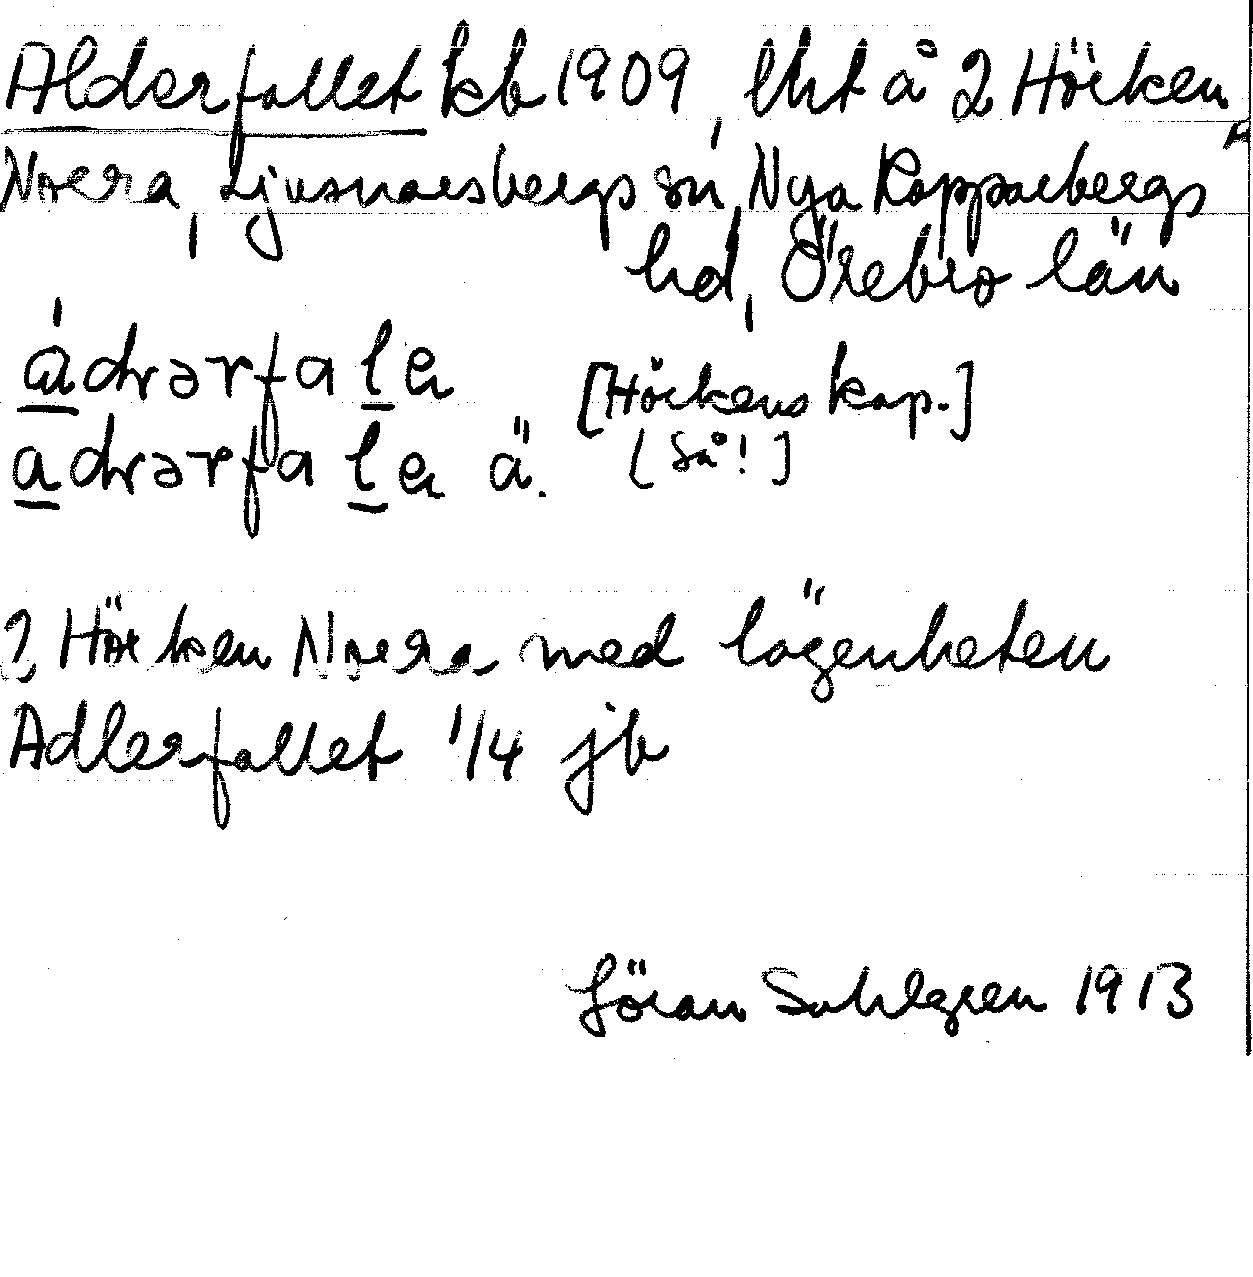 Alderfallet kb 1909, lht å 2 Hörken
Norra, Ljusnarsbergs sn, Nya Kopparbergs
hd, Örebro län
ádrərfalen [Hörkens kap.]
adrərfalen ä. [Så!]
2 Hörken Norra med lägenheten
Adlerfallet 1/4 jb
Jöran Sahlgren 1913